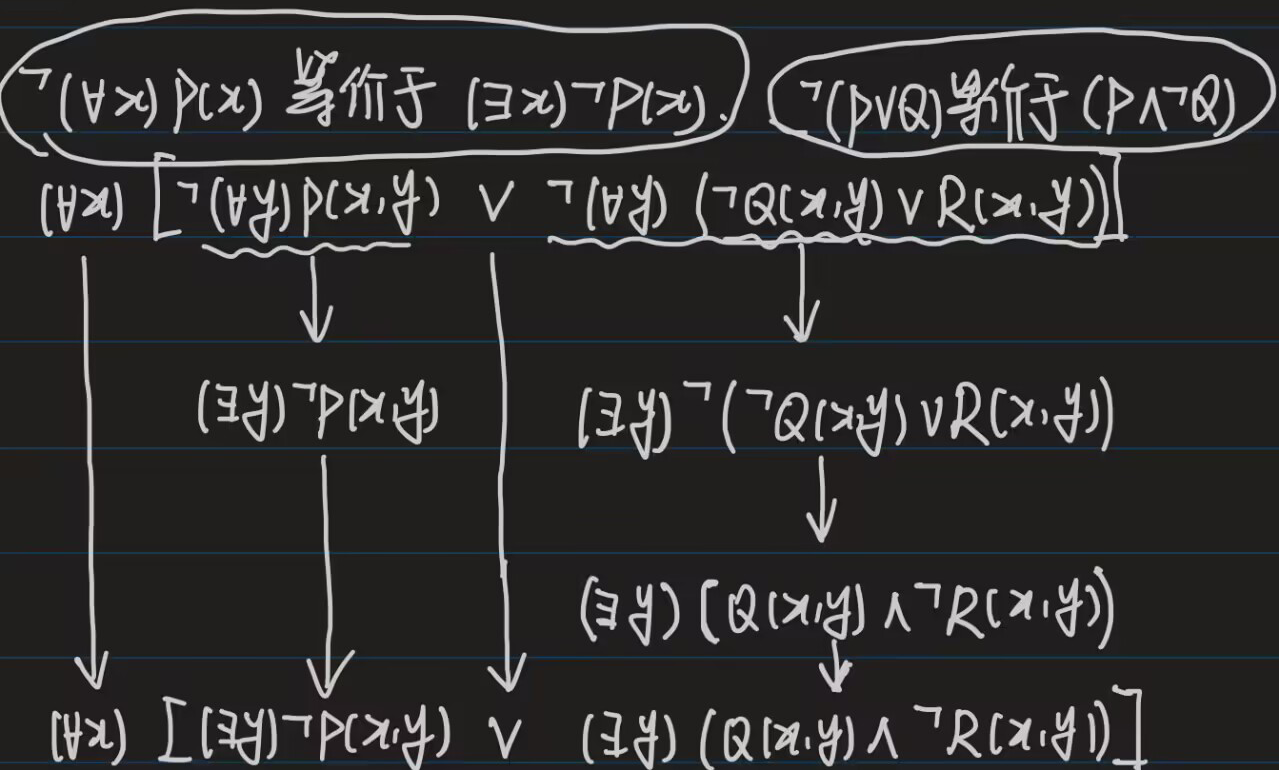 ¬(∀x)P(x) 等价于 (∃x)¬P(x). ¬(P∨Q)等价于(P∧¬Q)
(∀x) [¬(∀y)P(x,y) ∨ ¬(∀y) (¬Q(x,y)∨R(x,y))]
(∃y)¬P(x,y) (∃y)¬(¬Q(x,y)∨R(x,y))
(∃y)(Q(x,y)∧¬R(x,y))
(∀x) [(∃y)¬P(x,y) ∨ (∃y)(Q(x,y)∧¬R(x,y))]